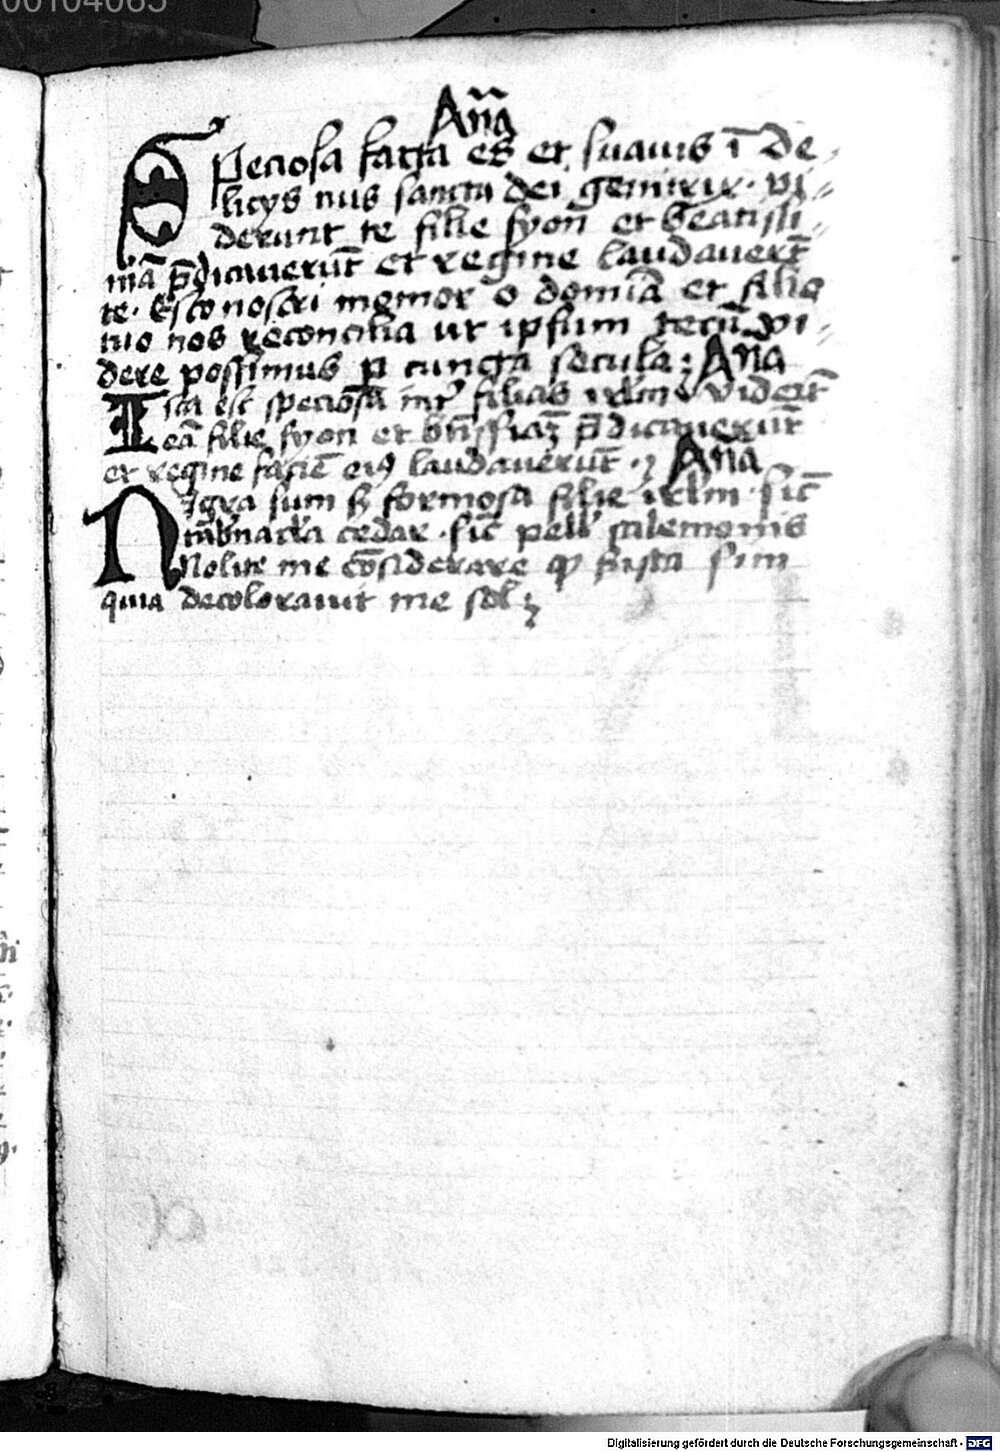 00104065
An̄a
Speciosa facta es et suauis ī de⸗
licÿs tuis sancta dei genitrix · vi⸗
derunt te filie syon et beatissi⸗
mā p̄dicauerūt et regine laudauerūt
te · Esto nostri memor o domīa et filio
tuo nos reconcilia ut ipsum tecū vi⸗
dere possimus p cuncta secula : An̄a
Ista est speciosa int̄ filias irl̄m viderūt
eā filie syon et btīssīaʒ p̄dicauerūt
et regine faciē eiꝰ laudauerūt · An̄a
Nigra sum sʒ formosa filie irl̄m · sic̄
tab̄nac̄la cedar · sic̄ pell' salemonis
Nolite me cōsiderare ꝙ fusca sim
quia decolorauit me sol
Digitalisierung gefördert durch die Deutsche Forschungsgemeinschaft - DFG